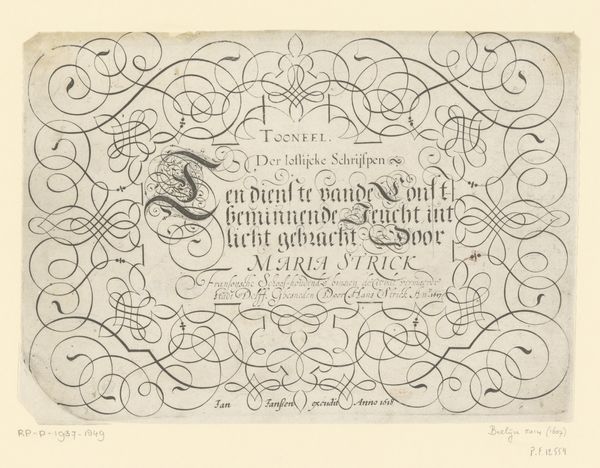 TOONEEL.
Der loflijcke Schrijfpen
Ten dienste vande Const
beminnende Jeucht int
licht gebracht Door
MARIA STRICK
Fransoysche School-houdend
Stadt Delff. Ghesneden Door Hans Strick. An° 1607
Jan Janssen excudit Anno 1618
RP-P-1937-1949
(1607)
P.F. 12554